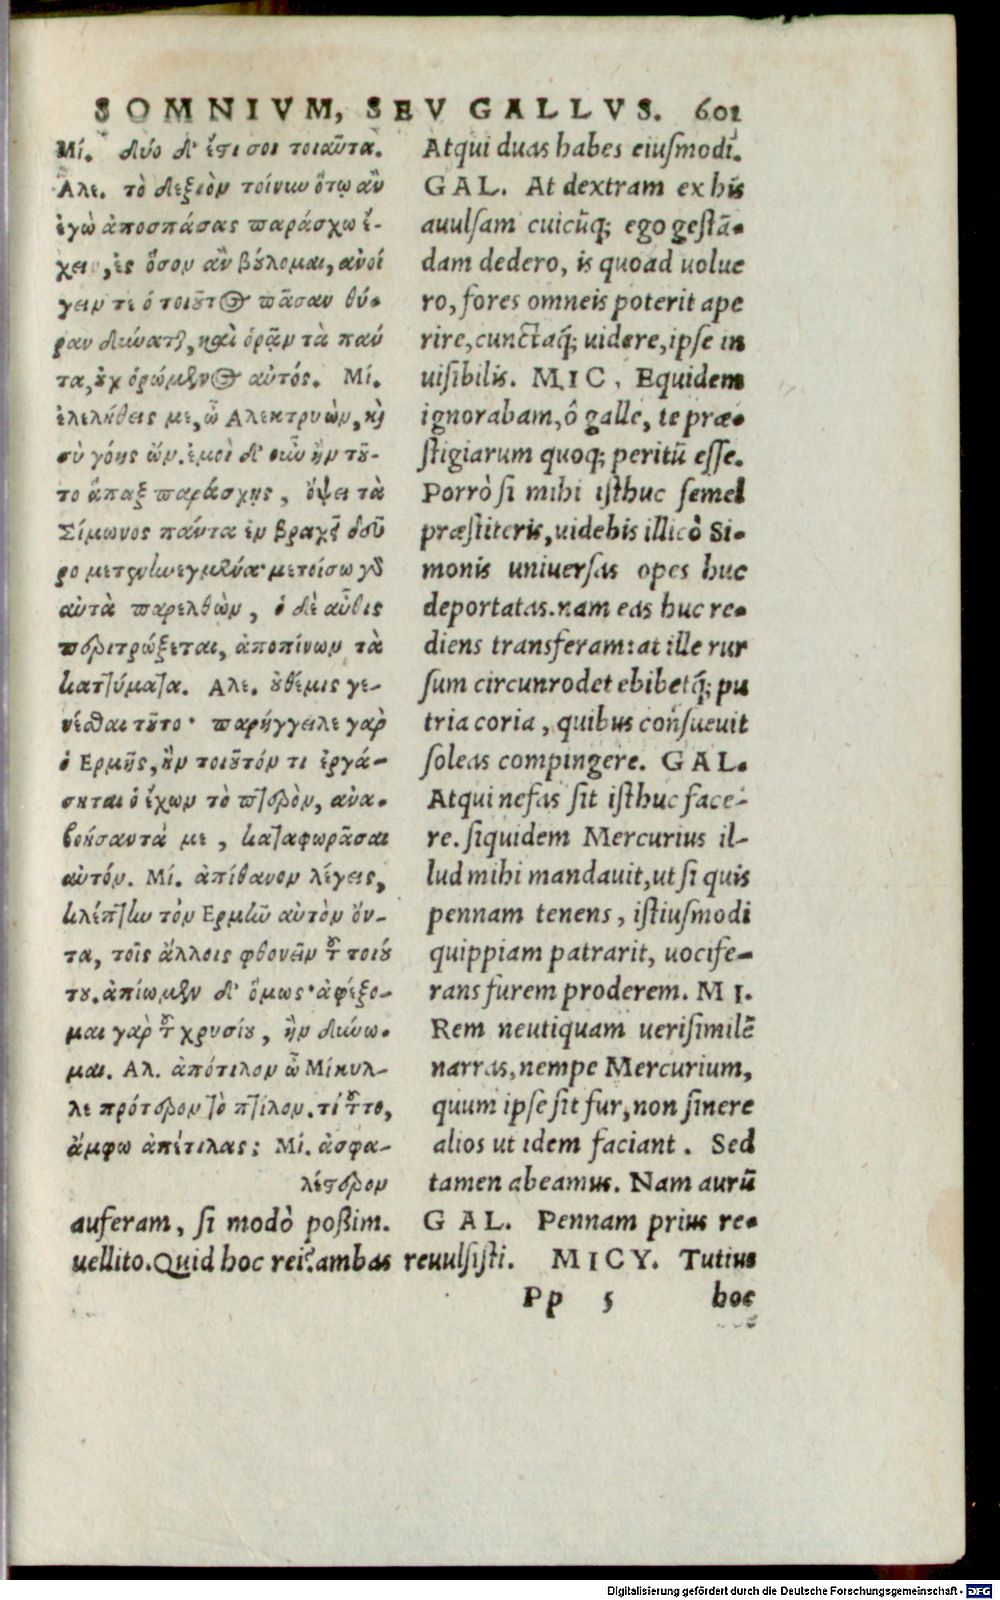 SOMNIVM, SEV GALLVS. 601
Μί. δύο δ' ἔστι σοι τοιαῦτα.
Αλε. τὸ δεξιὸν τοίνυν ὅτῳ ἂν
ἐγὼ ἀποσπάσας παράσχω ἔ-
χειν, ἐς ὅσον ἂν βούλομαι, ἀνοί
γειν τε ὁ τοιοῦτος πᾶσαν θύ-
ραν δύναται, καὶ ὁρᾷν τὰ πάν
τα, οὐχ ὁρώμενος αὐτός. Μί.
ἐλελήθεις με, ὦ Αλεκτρυὼν, καὶ
σὺ γόης ὤν. ἐμοὶ δ' οὖν ἢν τοῦ-
το ἅπαξ παράσχης, ὄψει τὰ
Σίμωνος πάντα ἐν βραχεῖ δεῦ
ρο μετενηνεγμένα· μετοίσω γὰρ
αὐτὰ παρελθὼν, ὁ δὲ αὖθις
περιτρώξεται, ἀποπίνων τὰ
καττύματα. Αλε. οὐ θέμις γε-
νέσθαι τοῦτο· παρήγγειλε γὰρ
ὁ Ερμῆς, ἢν τοιοῦτόν τι ἐργά-
σηται ὁ ἔχων τὸ πτερὸν, ἀνα-
βοήσαντά με, καταφωρᾶσαι
αὐτόν. Μί. ἀπίθανον λέγεις,
κλέπτην τὸν Ερμῆν αὐτὸν ὄν-
τα, τοῖς ἄλλοις φθονεῖν τοῦ τοιού
του. ἀπίωμεν δ' ὅμως· ἀφέξο-
μαι γὰρ τοῦ χρυσίου, ἢν δύνω-
μαι. Αλ. ἀπότιλον ὦ Μίκυλ-
λε πρότερον τὸ πτίλον. τί τοῦτο,
ἄμφω ἀπέτιλας; Μί. ἀσφα-
λέστερον
Atqui duas habes eiusmodi.
GAL. At dextram ex his
auulsam cuicũq; ego gestã-
dam dedero, is quoad uolue
ro, fores omneis poterit ape
rire, cunctaq́; uidere, ipse in
uisibilis. MIC. Equidem
ignorabam, ô galle, te præ-
stigiarum quoq; peritũ esse.
Porrò si mihi isthuc semel
præstiteris, uidebis illicò Si-
monis uniuersas opes huc
deportatas. nam eas huc re-
diens transferam: at ille rur
sum circunrodet ebibetq́; pu
tria coria, quibus consueuit
soleas compingere. GAL.
Atqui nefas sit isthuc face-
re. siquidem Mercurius il-
lud mihi mandauit, ut si quis
pennam tenens, istiusmodi
quippiam patrarit, uocife-
rans furem proderem. MI.
Rem neutiquam uerisimilẽ
narras, nempe Mercurium,
quum ipse sit fur, non sinere
alios ut idem faciant. Sed
tamen abeamus. Nam aurũ
auferam, si modò poßim. GAL. Pennam prius re-
uellito. Quid hoc rei? ambas reuulsisti. MICY. Tutius
Pp 5 hoc
Digitalisierung gefördert durch die Deutsche Forschungsgemeinschaft - DFG